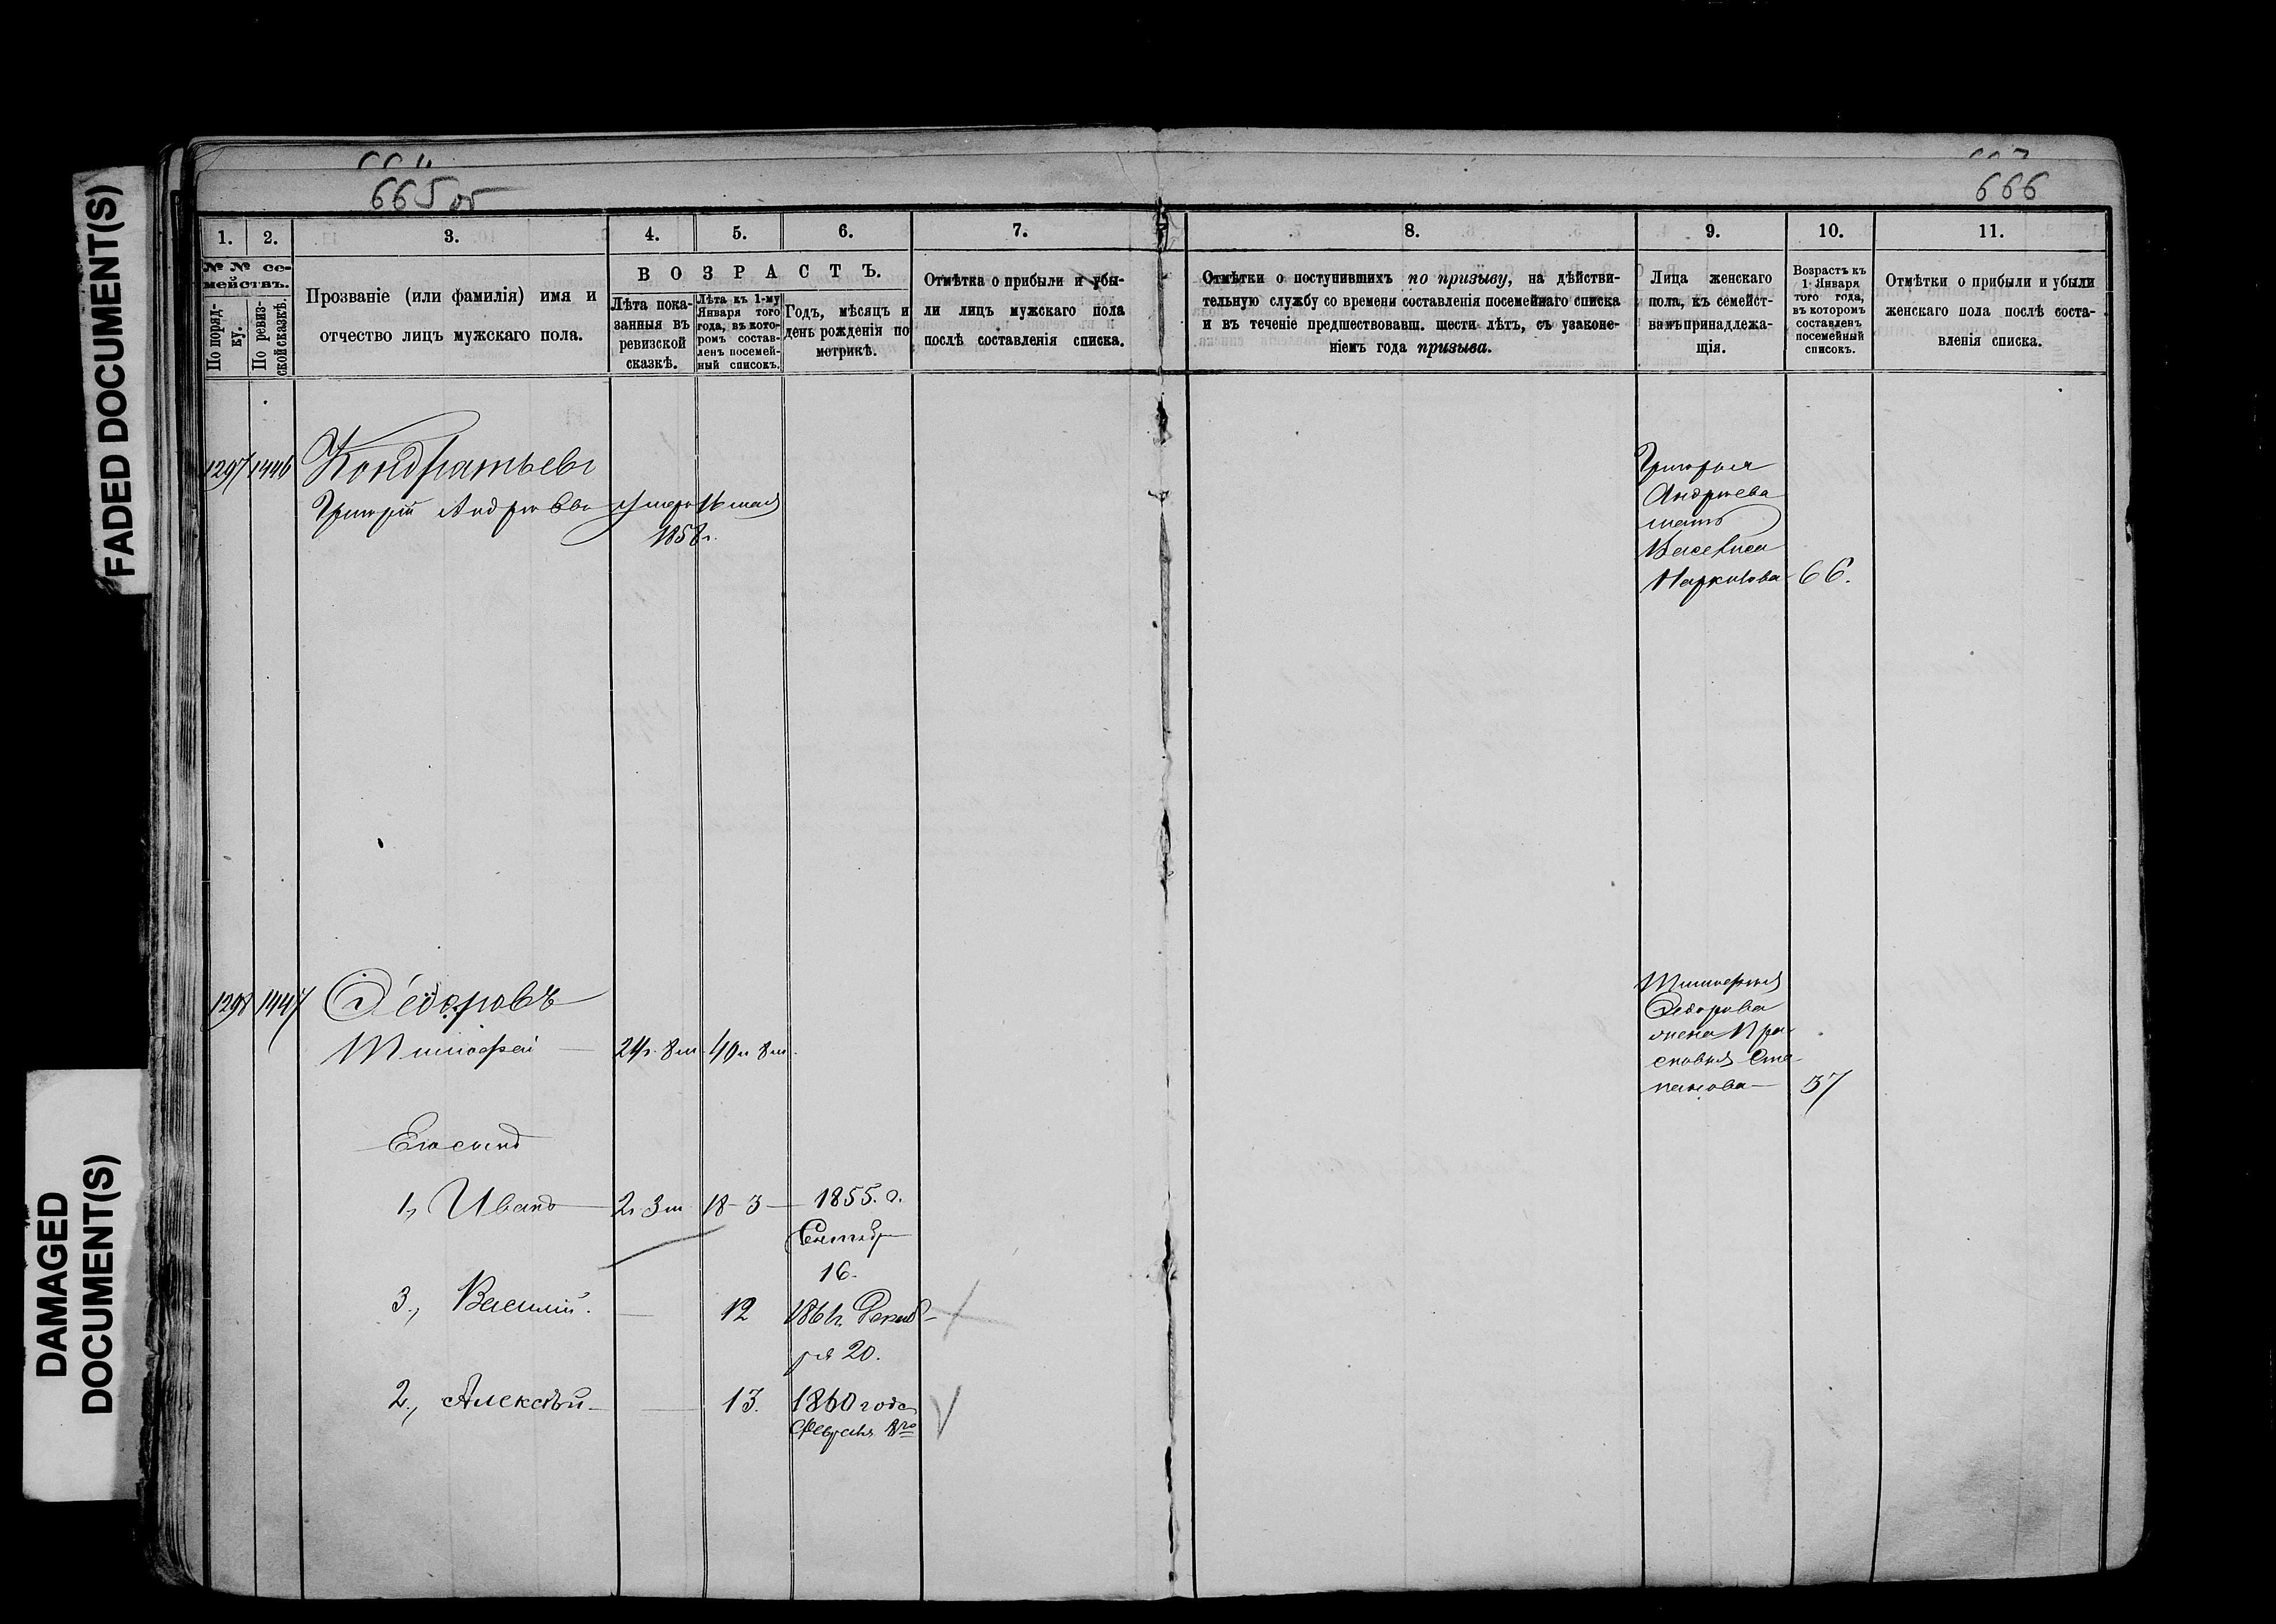 FADED DOCUMENT(S)
DAMAGED
DOCUMENT(S)
665 об
666
1. 2. 3. 4. 5. 6. 7.
№ № се-
мействъ.
По поряд-
ку.
По ревиз-
ской сказкѣ.
Прозваніе (или фамилія) имя и
отчество лицъ мужскаго пола.
ВОЗРАСТЪ.
Лѣта пока-
занныя въ
ревизской
сказкѣ.
Лѣта къ 1-му
Января того
года, въ кото-
ромъ состав-
ленъ посемей-
ный списокъ.
Годъ, мѣсяцъ и
день рожденія по
метрикѣ.
Отмѣтка о прибыли и убы-
ли лицъ мужскаго пола
послѣ составленія списка.
8. 9. 10. 11.
Отмѣтки о поступившихъ по призыву, на дѣйстви-
тельную службу со времени составленія посемейнаго списка
и въ теченіе предшествовавш. шести лѣтъ, съ узаконе-
ніемъ года призыва.
Лица женскаго
пола, къ семейст-
вамъ принадлежа-
щія.
Возрастъ къ
1 Января
того года,
въ которомъ
составленъ
посемейный
списокъ.
Отмѣтки о прибыли и убыли
женскаго пола послѣ соста-
вленія списка.
1297 1446 Кондратьевъ
Григорій Андреевъ умеръ 16 мая
1858 г.
Григорья
Андреева
мать
Васелиса
Маркиова 66.
1298 1447 Ѳедоровъ
Тимофей 24 г. 8 м. 40 л 8 м.
Тимофея
Ѳедорова
жена Пра-
сковья Сте-
панова 37
Его сынъ
1, Иванъ 2 г. 3 м 18-3 1855. г.
Сентябр
16.
3., Василий. 12 1861 г. Декаб-
ря 20.
2., Алексѣй 13. 1860 года
Февраля 8го